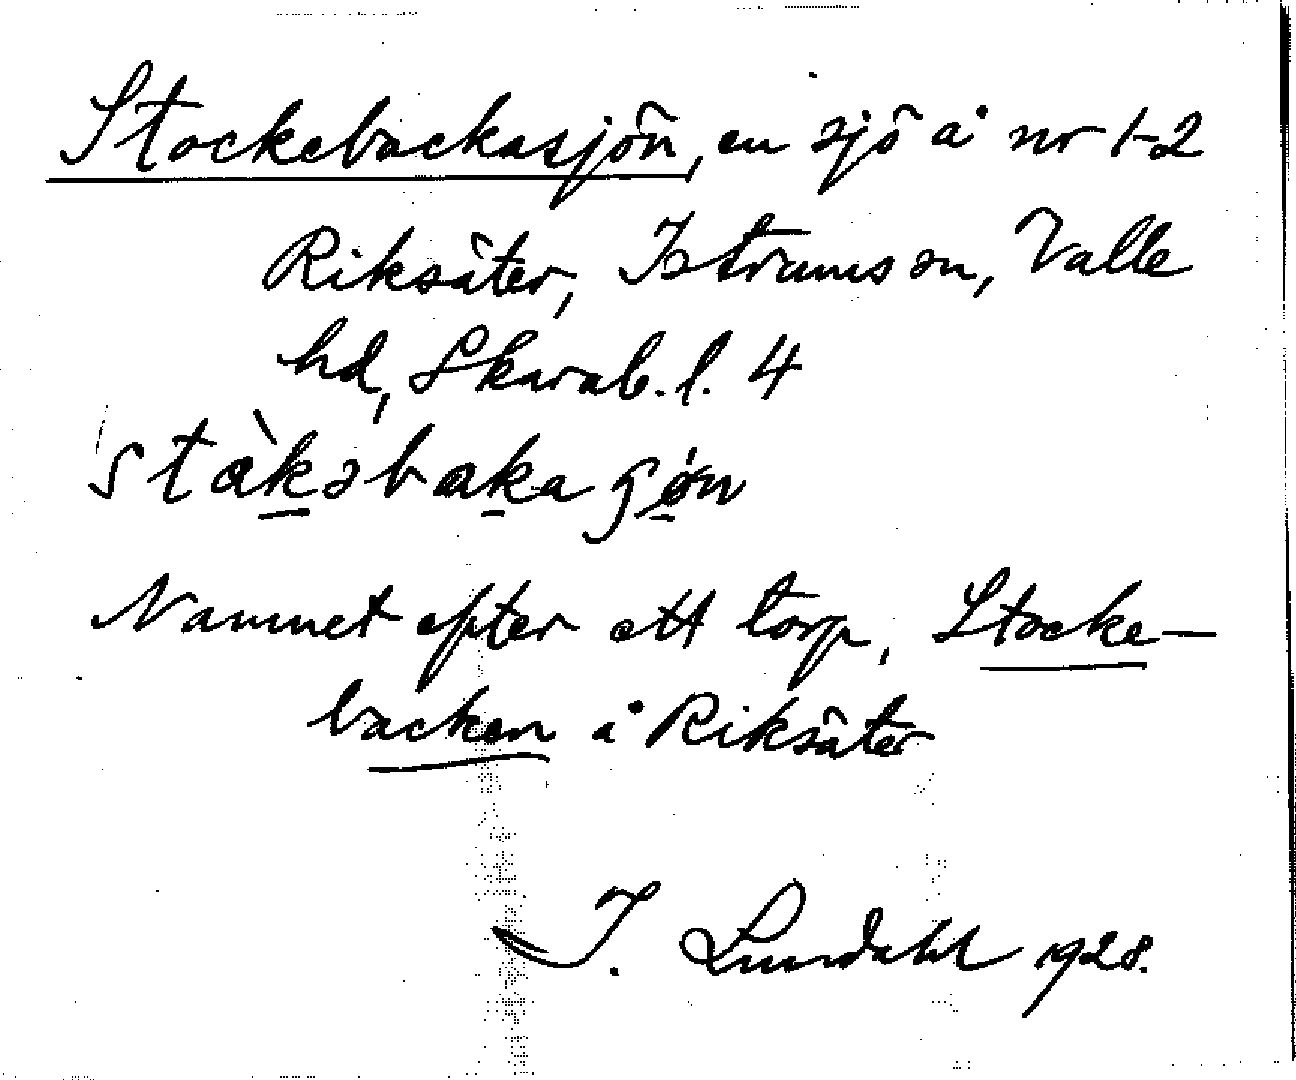 Stockebackasjön, en sjö å nr 1-2
Riksäter, Istrums sn, Valle
hd, Skarab. l. 4
Namnet efter ett torp, Stocke-
backen å Riksäter
I. Lundahl 1928.